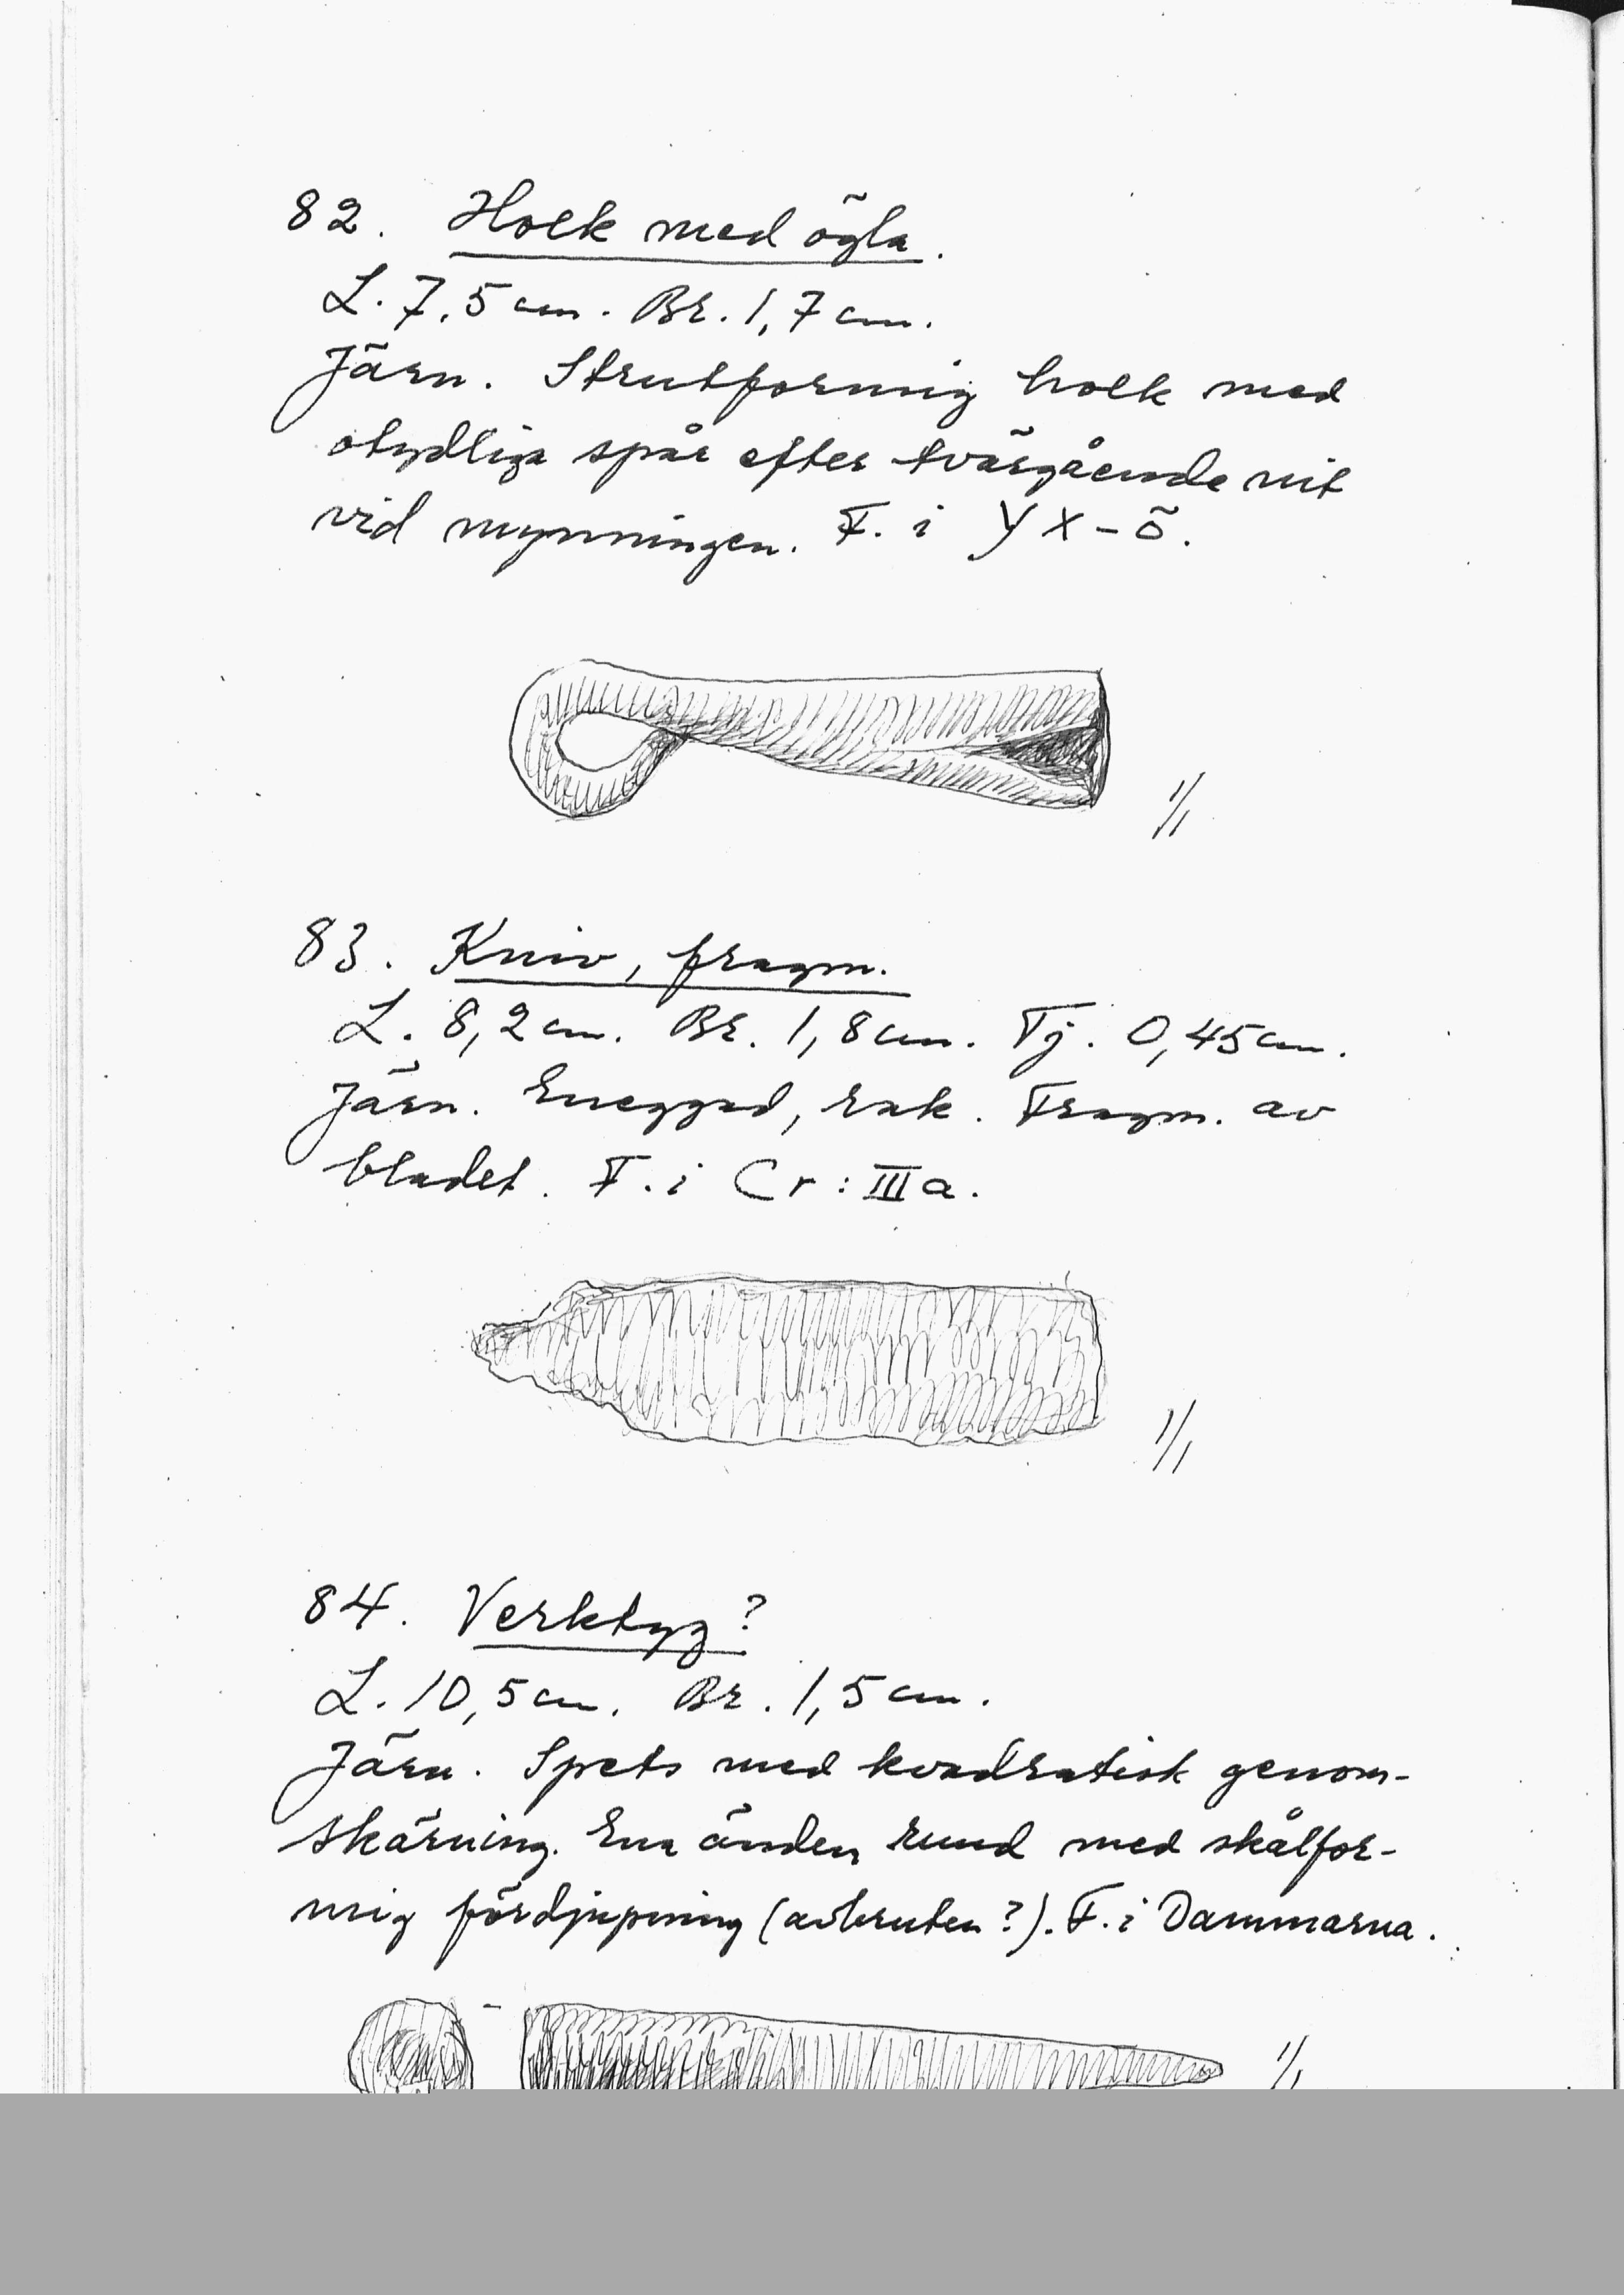 82. Holk med ögla.
L. 7,5 cm. Br. 1,7 cm.
Järn. Strutformig holk med
otydliga spår efter tvärgående nit
vid mynningen. F. i YX-ö.
1/1
83. Kniv, fragm.
L. 8,2 cm. Br. 1,8 cm. Tj. 0,45 cm.
Järn. Eneggad, rak. Fragm. av
bladet. F. i Cr: III a.
1/1
84. Verktyg?
L. 10,5 cm. Br. 1,5 cm.
Järn. Spets med kvadratisk genom-
skärning. Ena änden rund med skålfor-
mig fördjupning (avbruten?). F. i Dammarna.
1/1